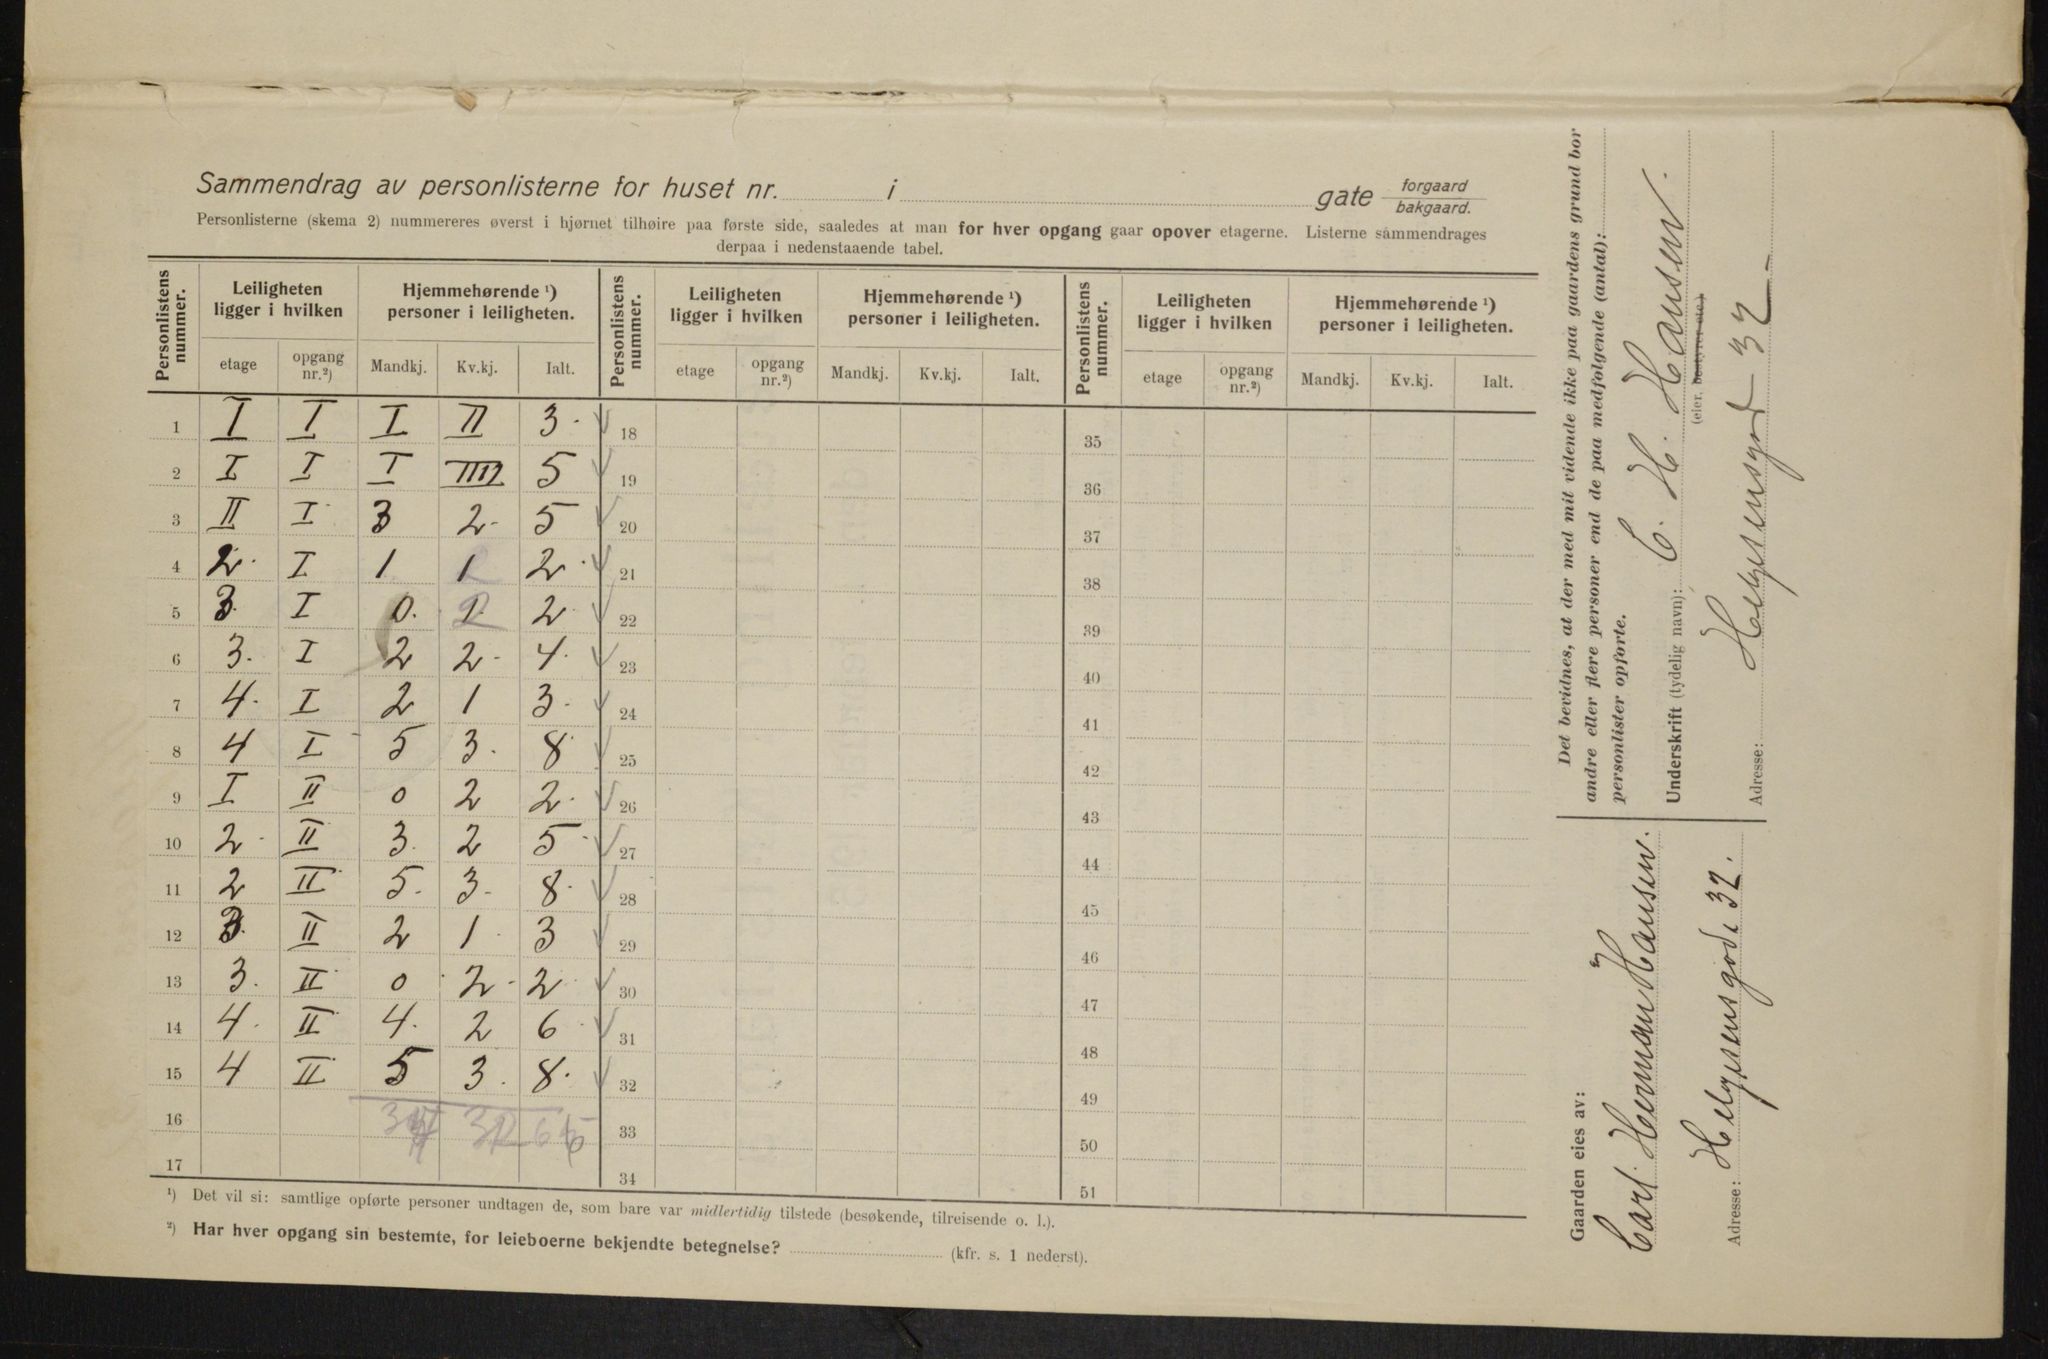 Sammendrag av personlisterne for huset nr. i gate forgaard bakgaard.
Personlisterne (skema 2) nummereres øverst i hjørnet tilhøire paa første side, saaledes at man for hver opgang gaar opover etagerne. Listerne sammendrages
derpaa i nedenstaaende tabel.
Personlistens nummer. Leiligheten ligger i hvilken Hjemmehørende ¹) personer i leiligheten. Personlistens nummer. Leiligheten ligger i hvilken Hjemmehørende ¹) personer i leiligheten. Personlistens nummer. Leiligheten ligger i hvilken Hjemmehørende ¹) personer i leiligheten.
etage opgang nr.²) Mandkj. Kv.kj. Ialt. etage opgang nr.²) Mandkj. Kv.kj. Ialt. etage opgang nr.²) Mandkj. Kv.kj. Ialt.
1 I I I II 3. 18 35
2 I I I IIII 5 19 36
3 II I 3 2 5 20 37
4 2 I 1 1 2 21 38
5 3 I 0 1 2 22 39
6 3. I 2 2 4 23 40
7 4. I 2 1 3 24 41
8 4 I 5 3. 8 25 42
9 I II 0 2 2 26 43
10 2 II 3 2 5 27 44
11 2 II 5. 3 8 28 45
12 3 II 2 1 3 29 46
13 3. II 0 2 2 30 47
14 4. II 4. 2 6 31 48
15 4 II 5 3. 8. 32 49
16 33 50
17 34 51
¹) Det vil si: samtlige opførte personer undtagen de, som bare var midlertidig tilstede (besøkende, tilreisende o. l.).
²) Har hver opgang sin bestemte, for leieboerne bekjendte betegnelse? (kfr. s. 1 nederst).
Det bevidnes, at der med mit vidende ikke paa gaardens grund bor
andre eller flere personer end de paa medfølgende (antal):
personlister opførte.
Underskrift (tydelig navn): C. H. Hansen.
(eier, bestyrer etc.)
Adresse: Helgesensgd 32
Gaarden eies av:
Carl Herman Hansen.
Adresse: Helgesensgade 32.